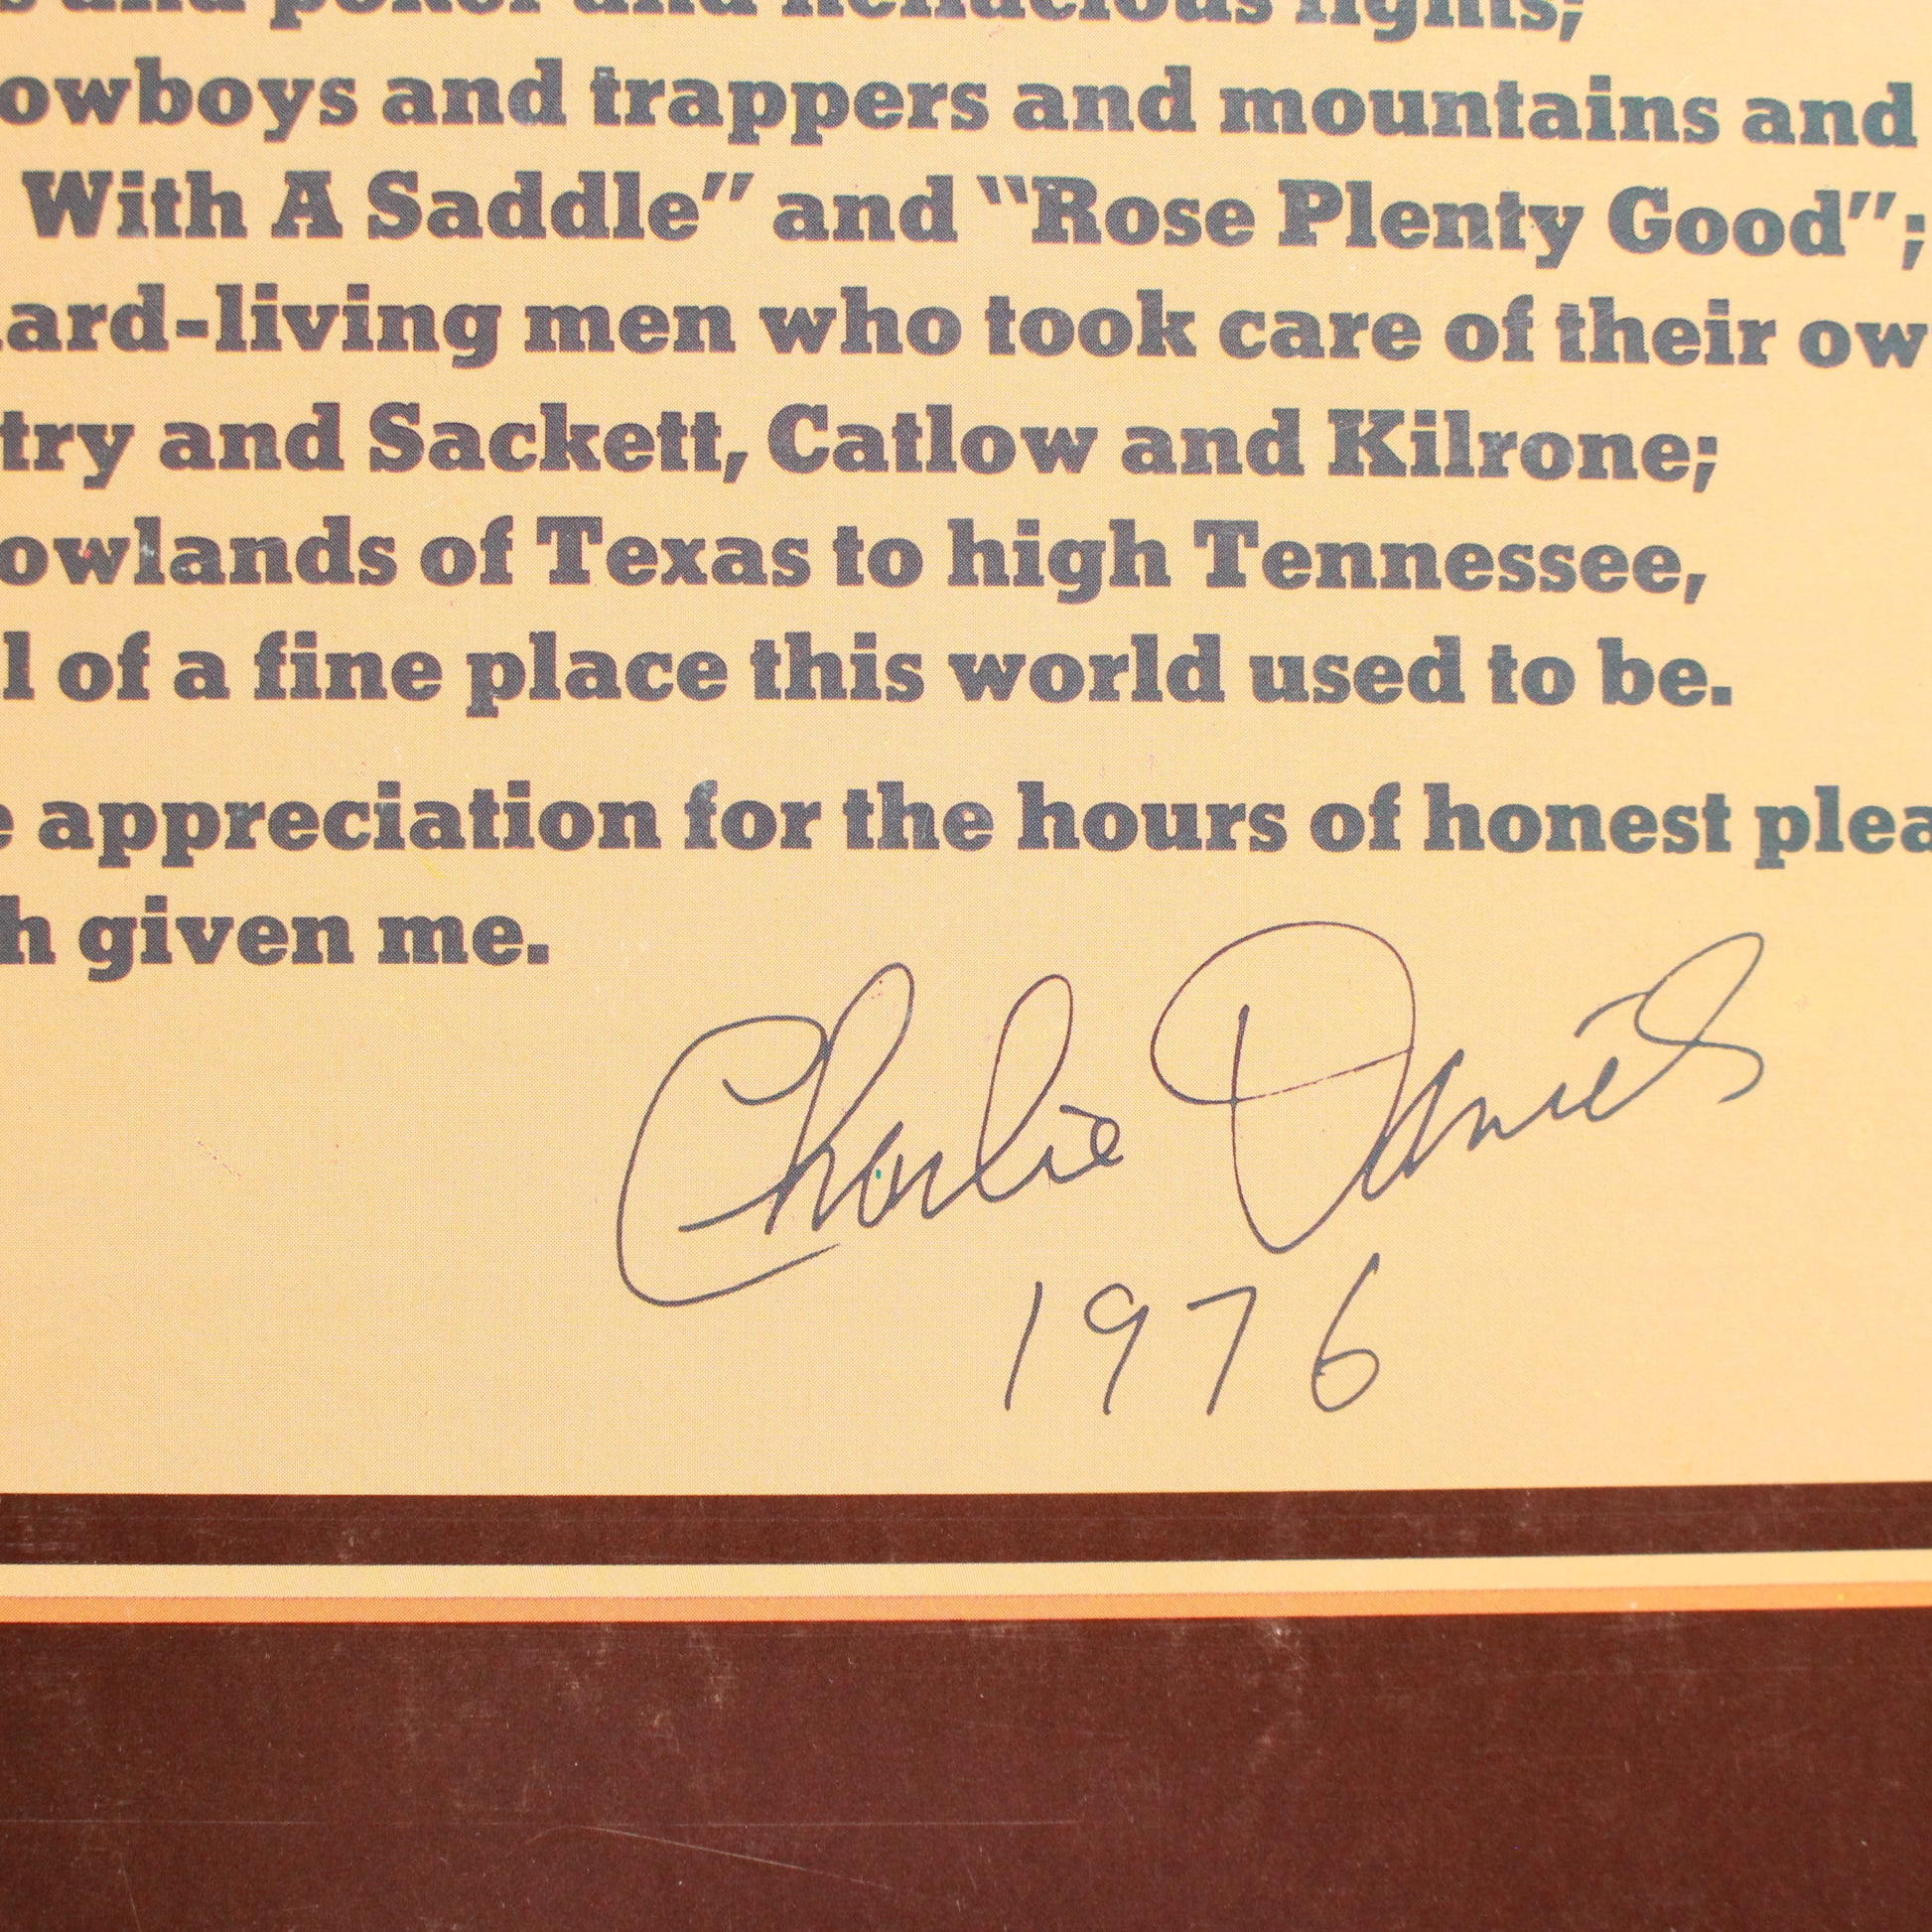 and poker and hellacious fights;
owboys and trappers and mountains and
With A Saddle” and “Rose Plenty Good”;
ard-living men who took care of their ow
try and Sackett, Catlow and Kilrone;
owlands of Texas to high Tennessee,
l of a fine place this world used to be.
e appreciation for the hours of honest plea
h given me.
Charlie Daniels
1976